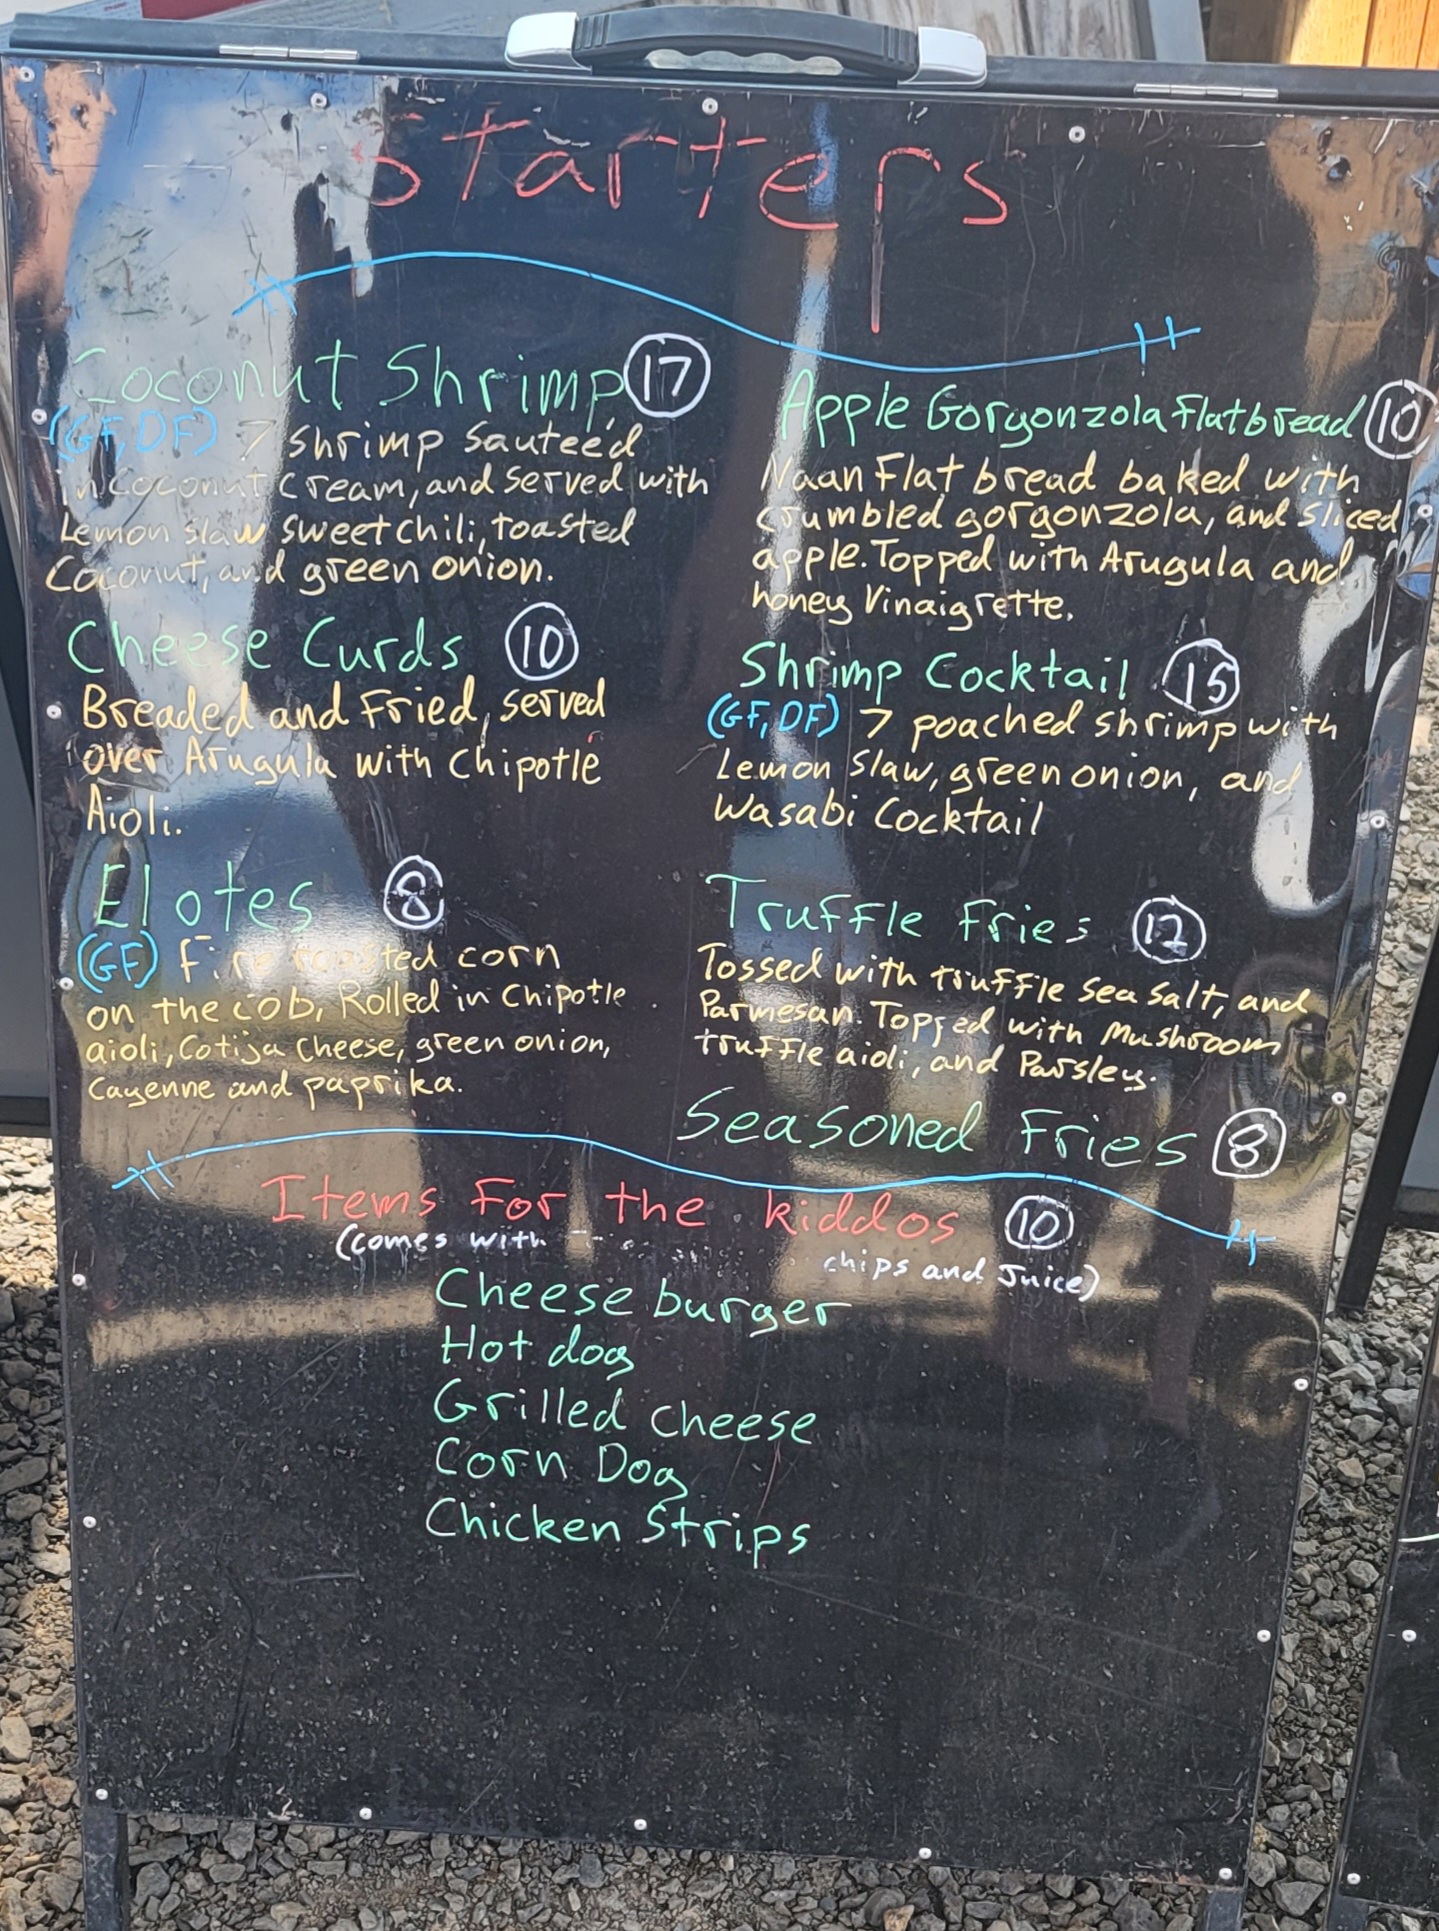 Starters
Coconut Shrimp 17
(GF, DF) 7 shrimp sauteéd
in coconut cream, and served with
Lemon slaw sweet chili, toasted
Coconut, and green onion.
Cheese Curds 10
Breaded and Fried, served
over Arugula with Chipotle
Aioli.
Elotes 8
(GF) Fire roasted corn
on the cob, Rolled in Chipotle
aioli, Cotija Cheese, green onion,
Cayenne and paprika.
Apple Gorgonzola Flatbread 10
Naan Flat bread baked with
crumbled gorgonzola, and sliced
apple. Topped with Arugula and
honey Vinaigrette.
Shrimp Cocktail 15
(GF, DF) 7 poached shrimp with
Lemon Slaw, green onion, and
Wasabi Cocktail
Truffle Fries 12
Tossed with truffle sea salt, and
Parmesan. Topped with Mushroom
truffle aioli, and Parsley.
Seasoned Fries 8
Items For the kiddos 10
(comes with chips and Juice)
Cheese burger
Hot dog
Grilled cheese
Corn Dog
Chicken Strips